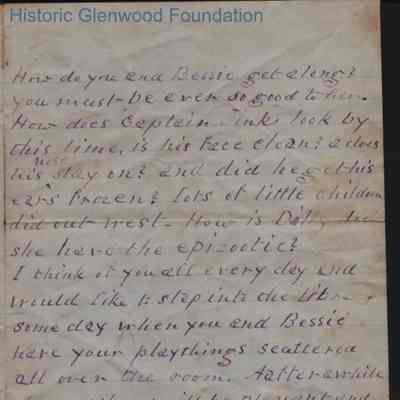 Historic Glenwood Foundation
How do you and Bessie get along?
you must be ever so good to her.
How does Captain Jinks look by
this time, is his face clean? & does
his nose stay on? and did he get his
ears frozen? lots of little children
did out west. How is Dolly
she have the epizootic?
I think of you all every day and
would like to step into the
some day when you and Bessie
have your playthings scattered
all over the room. Afterawhile